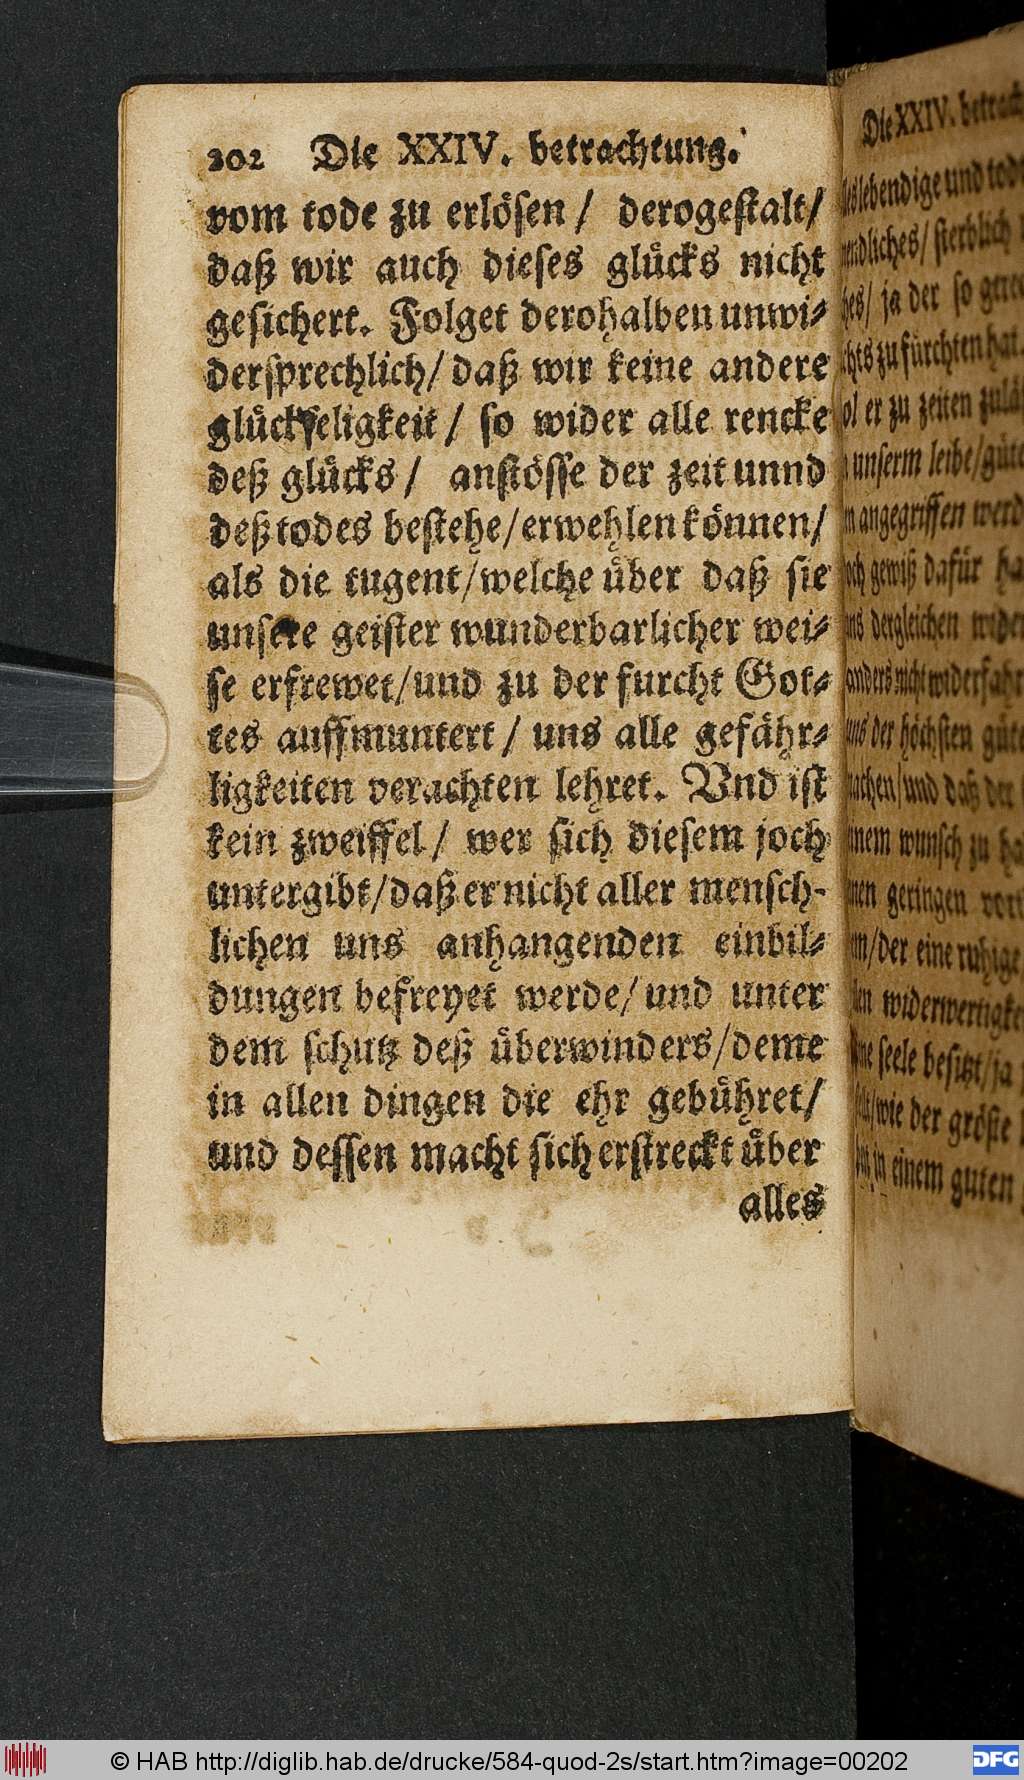 202 Die XXIV. betrachtung.
vom tode zu erlösen / derogestalt /
daß wir auch dieses glücks nicht
gesichert. Folget derohalben unwi-
dersprechlich / daß wir keine andere
glückseligkeit / so wider alle rencke
deß glücks / anstösse der zeit unnd
deß todes bestehe / erwehlen können /
als die tugent / welche über daß sie
unsere geister wunderbarlicher wei-
se erfrewet / und zu der furcht Got-
tes auffmuntert / uns alle gefähr-
ligkeiten verachten lehret. Vnd ist
kein zweiffel / wer sich diesem joch
untergibt / daß er nicht aller mensch-
lichen uns anhangenden einbil-
dungen befreyet werde / und unter
dem schutz deß überwinders / deme
in allen dingen die ehr gebühret /
und dessen macht sich erstreckt über
alles
Die XXIV.
lebendige und
sterblich
ja der so
zu fürchten hat
er zu zeiten
unserm leibe /
angegriffen
gewiß dafür
dergleichen
anders nicht
der höchsten
und daß der
wunsch zu
geringen
der eine
widerwertigke
seele besitzt / ja
wie der größte
in einem guten
© HAB http://diglib.hab.de/drucke/584-quod-2s/start.htm?image=00202
DFG